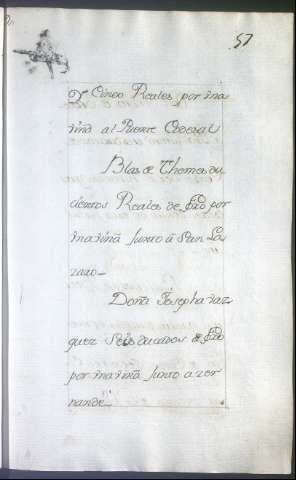 57
y Cinco Reales por una
viña al Puente Cedesal
Blas de Thomas du
cientos Reales de
por
una viña Junto â San La
zaro-
Doña Josepha vaz
quez Seis ducados de
por una viña Junto a